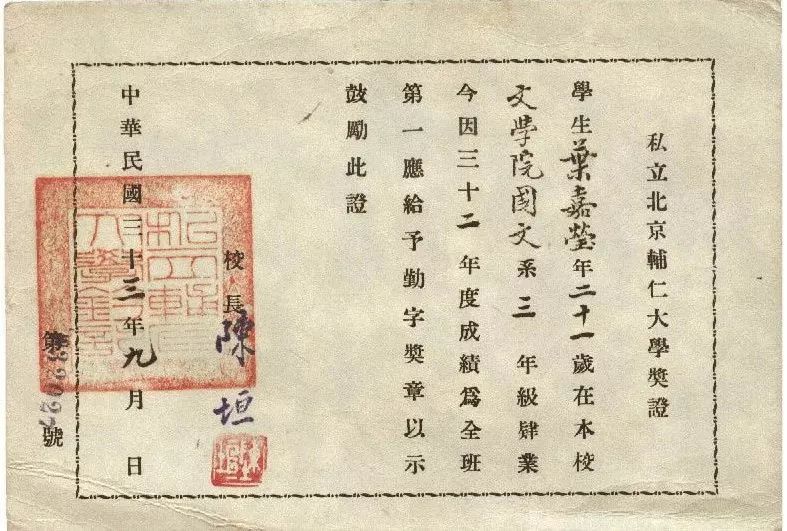 私立北京輔仁大學獎證
學生葉嘉瑩年二十一歲在本校
文學院國文系三年級肄業
今因三十二年度成績爲全班
第一應給予勤字獎章以示
鼓勵此證
校長陳垣
陳垣
中華民國三十三年九月日
第號